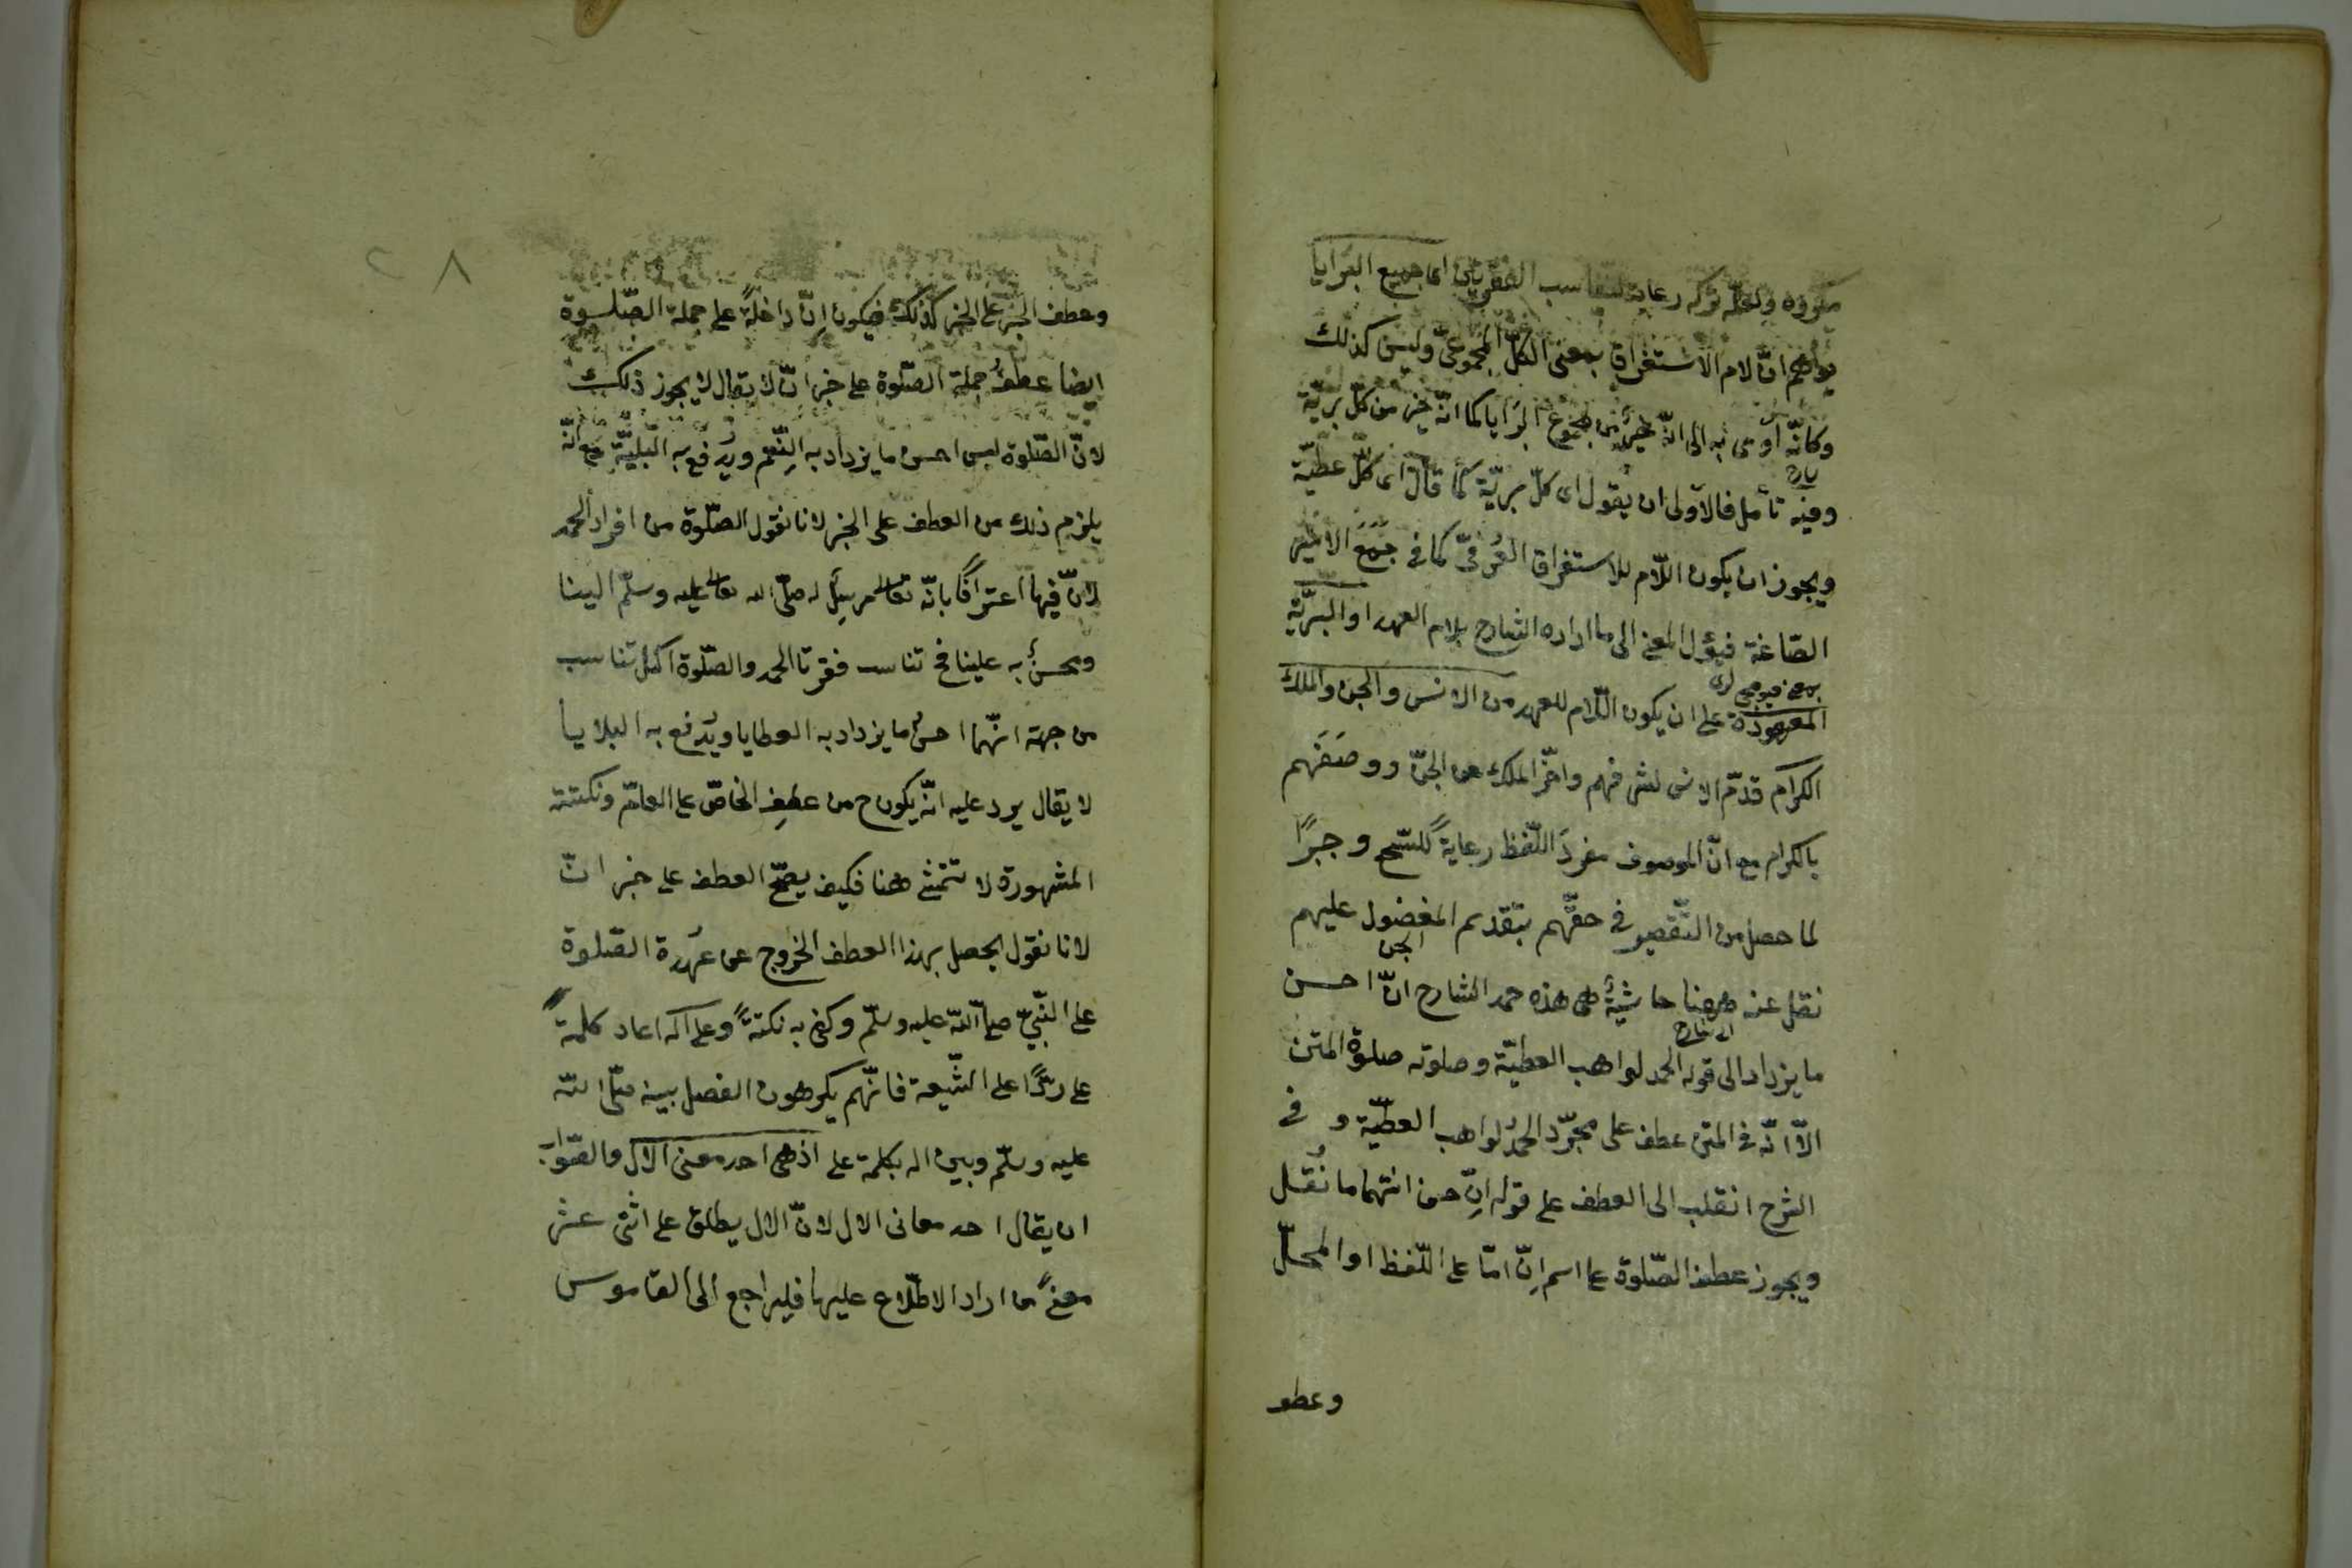 مكروه ولعله تركه رعاية لتناسب الفقرتين اى جميع البرايا
يواهم انّ لام الاستغراق بمعنى الكلّ المجموعىّ وليس كذلك
وكانّه اومى به الى انّه خير من مجموع البرايا كما انّه خير من كلّ بريّة
وفيه تأمل فالاولى ان يقول اى كلّ بريّة كما قال اى كلّ عطيّة
ويجوز ان يكون اللّام للاستغراق العُرفىّ كما فى جَمَعَ الامير
الصّاغة فيؤل المعنى الى ما اراده الشارح بلام العهد او البريّة
المعهودة على ان يكون اللّام للعهد من الانس والجن والملك
الكرام قدّم الانس لشرفهم واخّر الملك عن الجنّ ووصَفَهم
بالكرام مع انّ الموصوف مفردَ اللّفظ رعايةً للسّجع وجبرًا
لما حصل من التّقصير فى حقّهم بتقديم المفضول عليهم
الجن
نقل عنه ههنا حاشيةٌ هى هذه حمد الشارح انّ احسن
الشارح
ما يزداد الى قوله الحمد لواهب العطيّة وصلوته صلوة المتن
الّا انّه فى المتن عطف على مجرّد الحمدُ لواهب العطيّة و فى
الشرح انقلب الى العطف على قوله اِنّ حسن انتهى ما نُقل
ويجوز عطف الصّلوة على اسم اِنّ امّا على اللّفظ او المحلّ
وعطف
٢٨
وعطف الخبر على الخبر كذلك فيكون اِنّ داخلةً على جملة الصّلوة
ايضا عطفُ جملة الصّلوة على خبر انّ لا يقال لا يجوز ذلك
لانّ الصّلوة ليس احسن ما يزداد به النِّعم ويُدفع به البليّة مع انّه
يلزم ذلك من العطف على الخبر لانا نقول الصّلوة من افراد الحمد
لانّ فيها اعترافًا بانّه تعالى مرسِلٌ له صلّى الله تعالى عليه وسلّم الينا
ومحسنٌ به علينا فح تناسب فقرتا الحمد والصّلوة اكمل تناسب
من جهة انّهما احسن ما يزداد به العطايا ويُدفع به البلايا
لا يقال يرد عليه انّه يكون ح من عطفِ الخاصّ على العامّ ونكتته
المشهورة لا تتمشّى ههنا فكيف يصحّ العطف على خبر انّ
لانا نقول يحصل بهذا العطف الخروج عن عُهدة الصّلوة
على النّبيّ صلى اللّه عليه وسلّم وكفى به نكتةً وعلى آله اعاد كلمة
على ردًّا على الشّيعة فانّهم يكرهون الفصل بينه صلّى اللّه
عليه وسلّم وبين اله بكلمة على اذ هى احد معنى الال والصّواب
ان يقال احد معانى الال لانّ الال يطلق على اثنى عشر
معنًى من اراد الاطّلاع عليها فليراجع الى القاموس